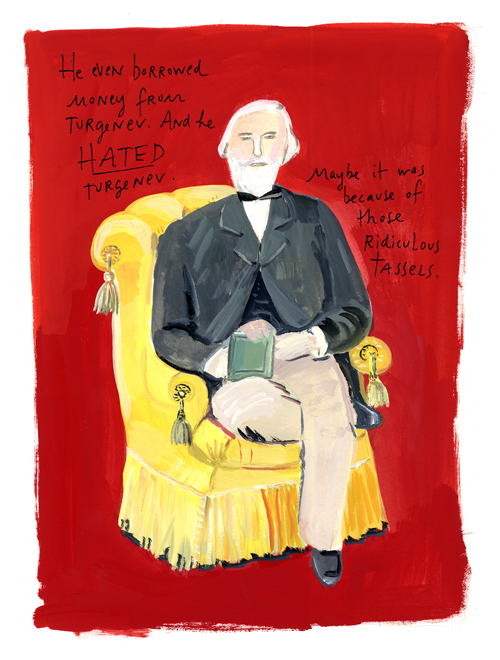 He even borrowed
money from
Turgenev. And he
HATED
Turgenev.
Maybe it was
because of
those
Ridiculous
Tassels.